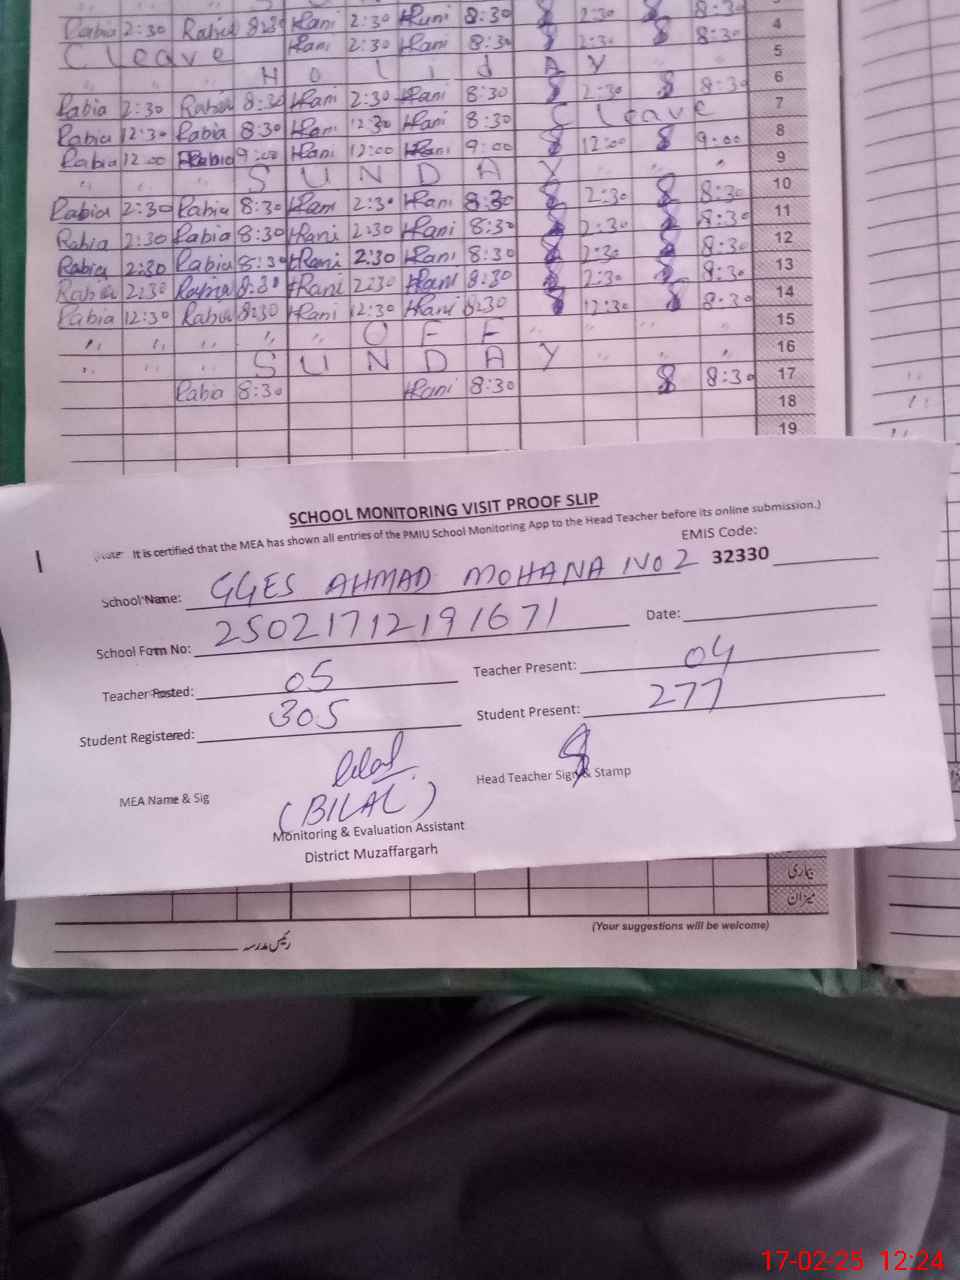 3
Rabia 2:30 Rabia 8:30 HRani 2:30 HRani 8:30 2:30 8:30 4
C leave HRani 2:30 HRani 8:30 2:30 8:30 5
H o l i d A Y 6
Rabia 2:30 Rabia 8:30 HRani 2:30 HRani 8:30 2:30 8:30 7
Rabia 12:30 Rabia 8:30 HRani 12:30 HRani 8:30 C leave 8
Rabia 12:00 Rabia 9:00 HRani 12:00 HRani 9:00 12:00 9:00 9
S U N D A Y 10
Rabia 2:30 Rabia 8:30 HRani 2:30 HRani 8:30 2:30 8:30 11
Rabia 2:30 Rabia 8:30 HRani 2:30 HRani 8:30 2:30 8:30 12
Rabia 2:30 Rabia 8:30 HRani 2:30 HRani 8:30 2:30 8:30 13
Rabia 2:30 Rabia 8:30 HRani 2:30 HRani 8:30 2:30 8:30 14
Rabia 12:30 Rabia 8:30 HRani 12:30 HRani 8:30 12:30 8:30 15
O F F 16
S U N D A Y 17
Rabia 8:30 HRani 8:30 8:30 18
19
SCHOOL MONITORING VISIT PROOF SLIP
Note: It is certified that the MEA has shown all entries of the PMIU School Monitoring App to the Head Teacher before its online submission.)
EMIS Code:
School Name: GGES AHMAD MOHANA NO 2 32330
School Form No: 25021712191671 Date:
Teacher Posted: 05 Teacher Present: 04
Student Registered: 305 Student Present: 277
Bilal
MEA Name & Sig (BILAL) Head Teacher Sign & Stamp
Monitoring & Evaluation Assistant
District Muzaffargarh
بیماری
میزان
(Your suggestions will be welcome)
رئیس مدرسہ
17-02-25 12:24